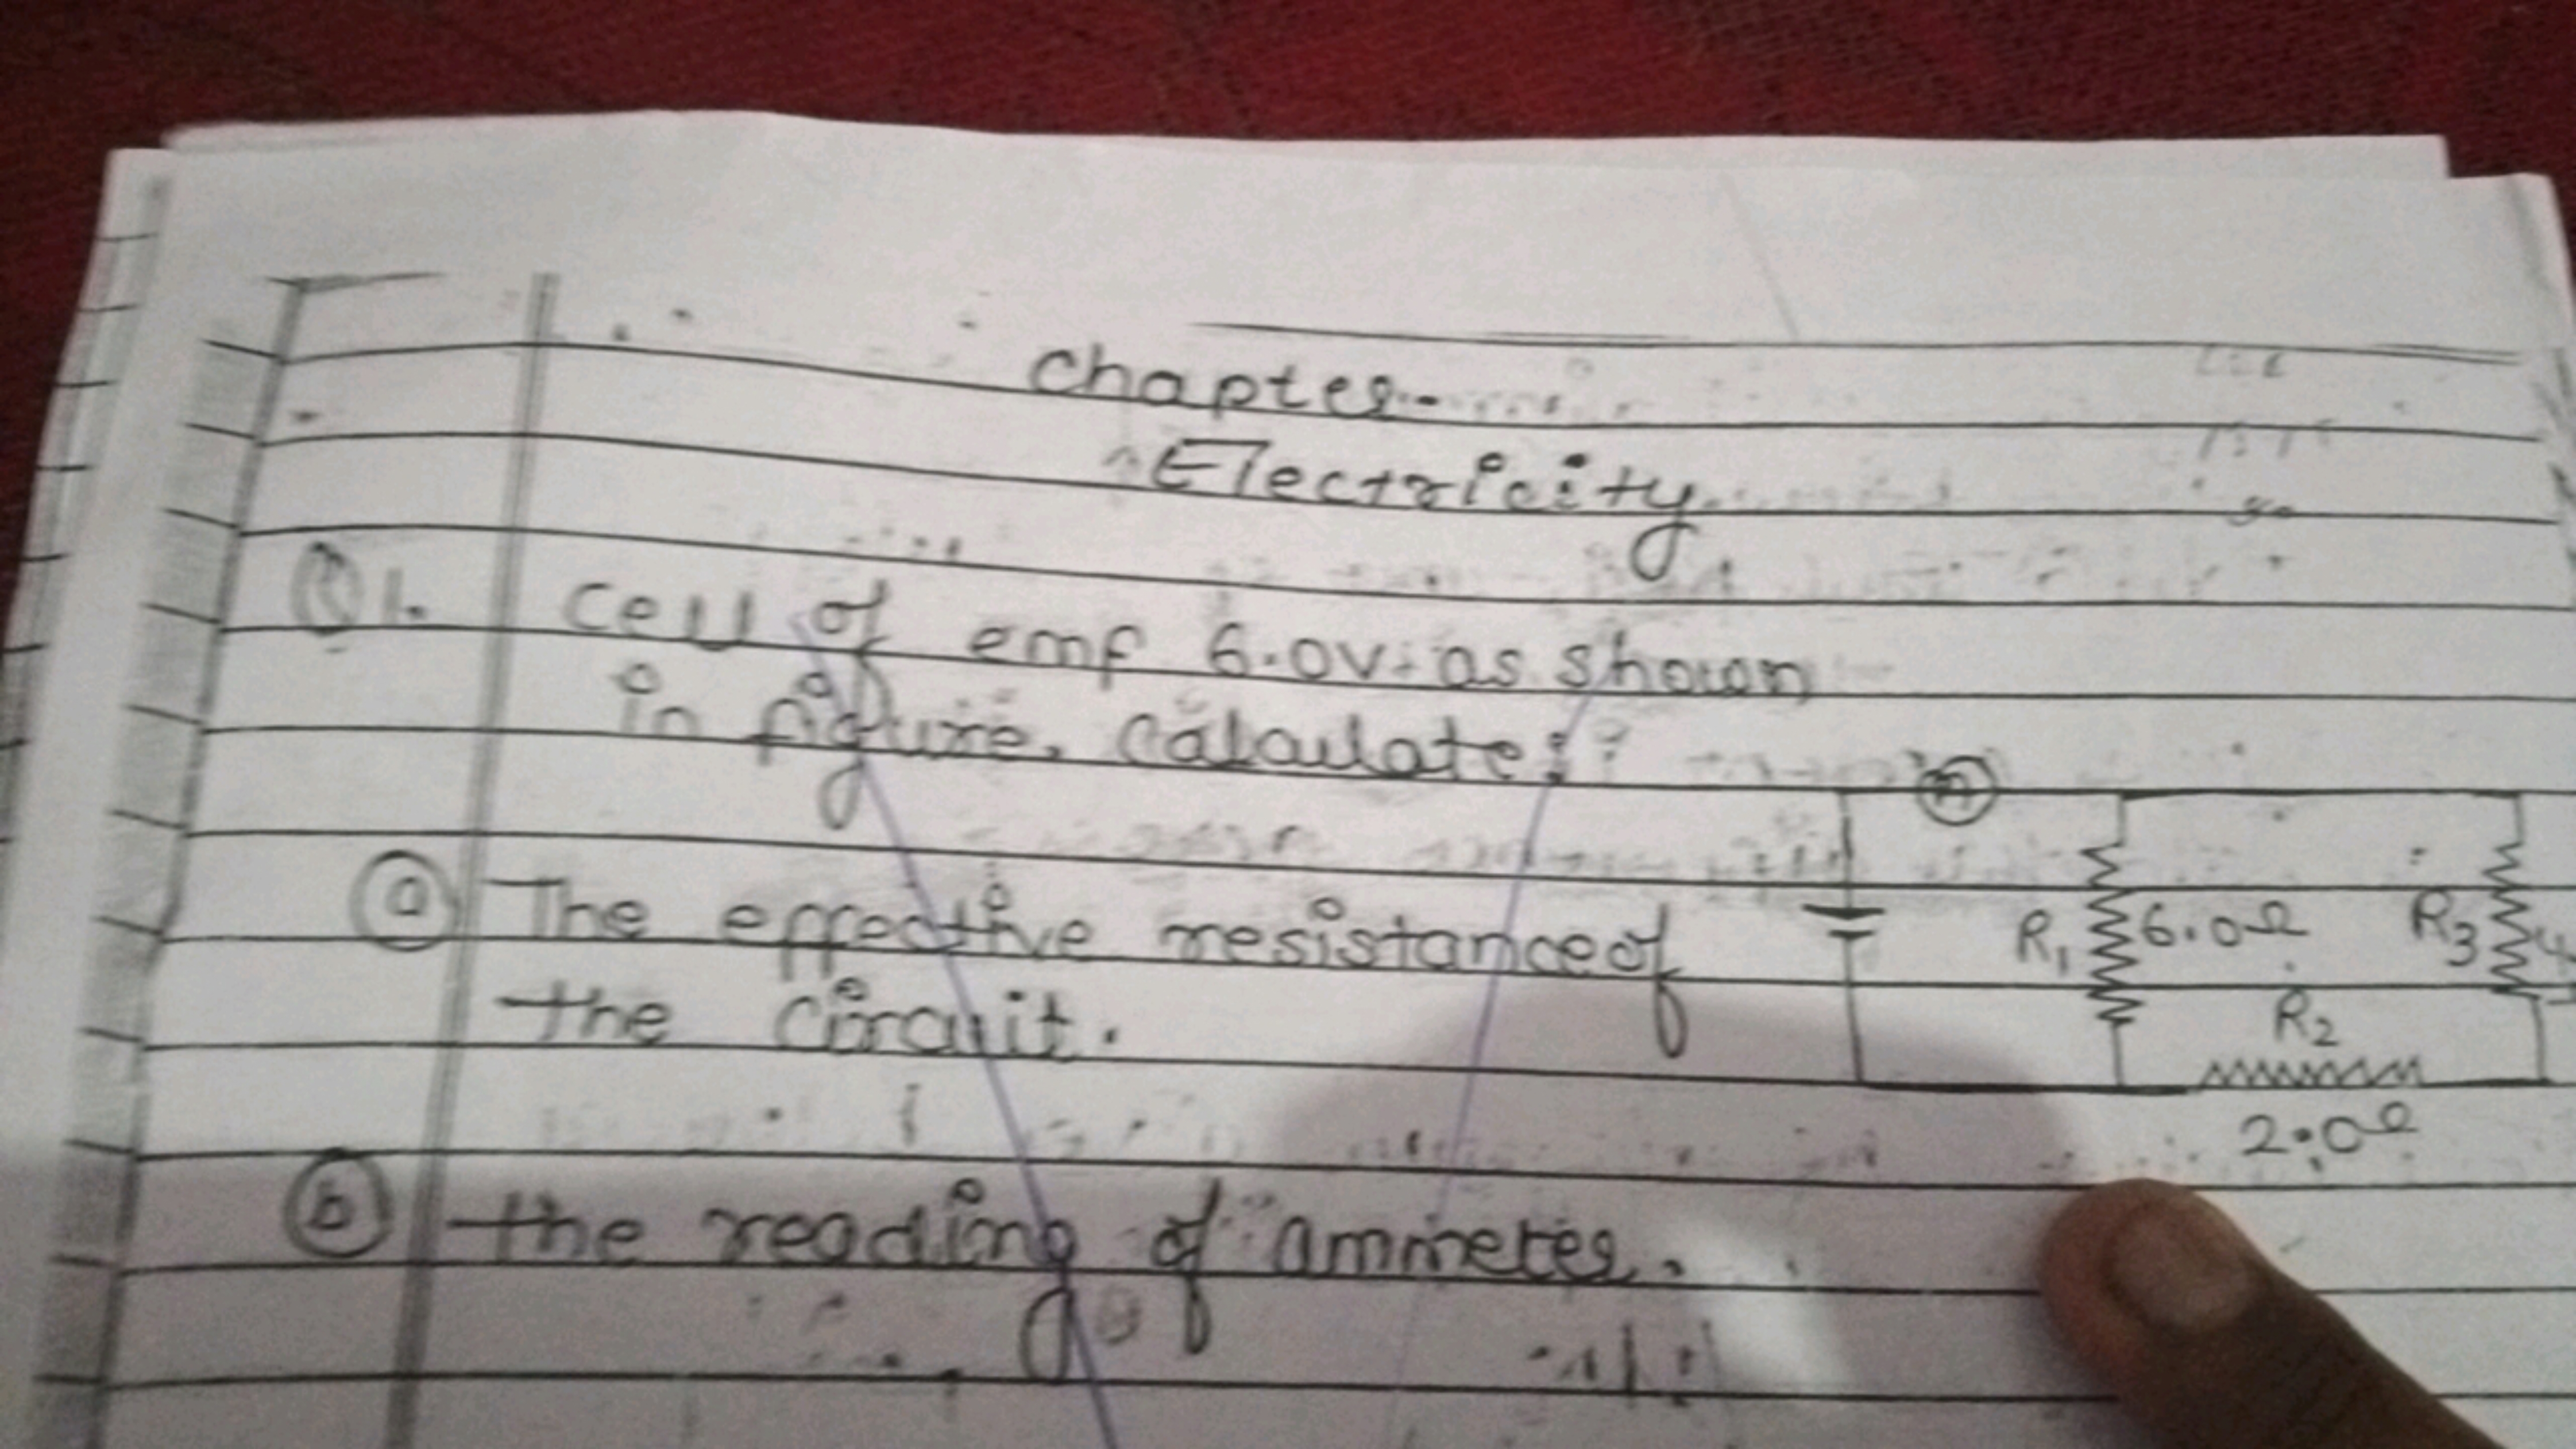 Chapter-
Electricity
Q1. Cell of emf 6.0v. as shown
in figure. Calculate:?
A
a The effective resistance of
the circuit.
R1 6.0Ω R3 4
R2
2.0Ω
b the reading of ammeter.